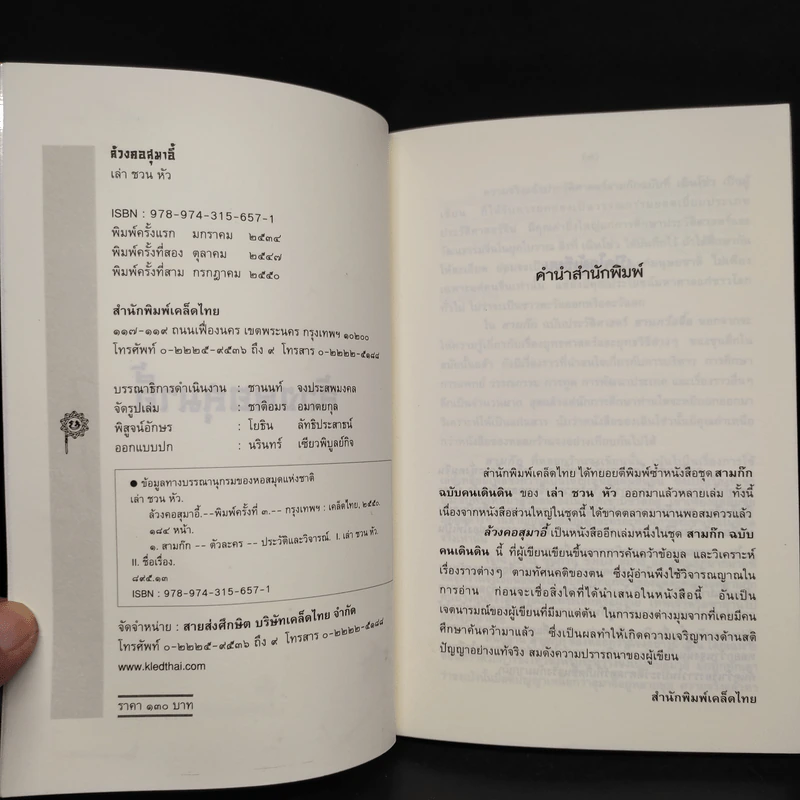 ล้วงคอสุมาอี้
เล่า ชวน หัว
ISBN : 978-974-315-657-1
พิมพ์ครั้งแรก มกราคม ๒๕๓๔
พิมพ์ครั้งที่สอง ตุลาคม ๒๕๔๗
พิมพ์ครั้งที่สาม กรกฎาคม ๒๕๕๐
สำนักพิมพ์เคล็ดไทย
๑๑๗-๑๑๙ ถนนเฟื่องนคร เขตพระนคร กรุงเทพฯ ๑๐๒๐๐
โทรศัพท์ ๐-๒๒๒๕-๙๕๓๖ ถึง ๙ โทรสาร ๐-๒๒๒๒-๕๑๘๘
บรรณาธิการดำเนินงาน : ชานนท์ จงประสพมงคล
จัดรูปเล่ม : ชาติอมร อมาตยกุล
พิสูจน์อักษร : โยธิน ลัทธิประสาธน์
ออกแบบปก : นรินทร์ เชียวพิบูลย์กิจ
● ข้อมูลทางบรรณานุกรมของหอสมุดแห่งชาติ
เล่า ชวน หัว.
ล้วงคอสุมาอี้.--พิมพ์ครั้งที่ ๓.-- กรุงเทพฯ : เคล็ดไทย, ๒๕๕๐.
๑๘๔ หน้า.
๑. สามก๊ก -- ตัวละคร -- ประวัติและวิจารณ์. I. เล่า ชวน หัว.
II. ชื่อเรื่อง.
๘๙๕.๑๓
ISBN : 978-974-315-657-1
จัดจำหน่าย : สายส่งศึกษิต บริษัทเคล็ดไทย จำกัด
โทรศัพท์ ๐-๒๒๒๕-๙๕๓๖ ถึง ๙ โทรสาร ๐-๒๒๒๒-๕๑๘๘
www.kledthai.com
ราคา ๑๓๐ บาท
คำนำสำนักพิมพ์
สำนักพิมพ์เคล็ดไทย ได้ทยอยตีพิมพ์ซ้ำหนังสือชุด สามก๊ก
ฉบับคนเดินดิน ของ เล่า ชวน หัว ออกมาแล้วหลายเล่ม ทั้งนี้
เนื่องจากหนังสือส่วนใหญ่ในชุดนี้ ได้ขาดตลาดมานานพอสมควรแล้ว
ล้วงคอสุมาอี้ เป็นหนังสืออีกเล่มหนึ่งในชุด สามก๊ก ฉบับ
คนเดินดิน นี้ ที่ผู้เขียนเขียนขึ้นจากการค้นคว้าข้อมูล และวิเคราะห์
เรื่องราวต่างๆ ตามทัศนคติของตน ซึ่งผู้อ่านพึงใช้วิจารณญาณใน
การอ่าน ก่อนจะเชื่อสิ่งใดที่ได้นำเสนอในหนังสือนี้ อันเป็น
เจตนารมณ์ของผู้เขียนที่มีมาแต่ต้น ในการมองต่างมุมจากที่เคยมีคน
ศึกษาค้นคว้ามาแล้ว ซึ่งเป็นผลทำให้เกิดความเจริญทางด้านสติ
ปัญญาอย่างแท้จริง สมดังความปรารถนาของผู้เขียน
สำนักพิมพ์เคล็ดไทย